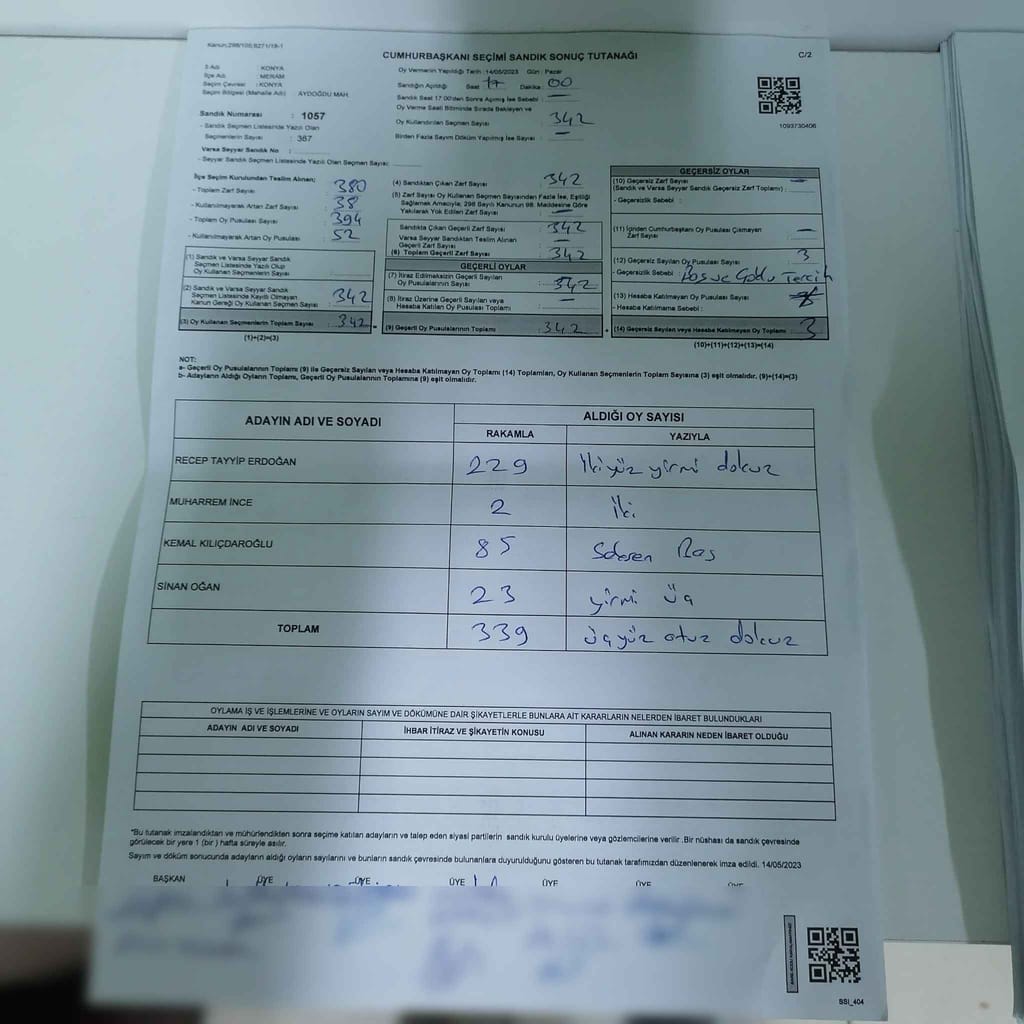 Kanun:298/105;6271/18-1
CUMHURBAŞKANI SEÇİMİ SANDIK SONUÇ TUTANAĞI
C/2
İl Adı : KONYA
İlçe Adı : MERAM
Seçim Çevresi : KONYA
Seçim Bölgesi (Mahalle Adı) AYDOĞDU MAH.
Sandık Numarası : 1057
- Sandık Seçmen Listesinde Yazılı Olan
Seçmenlerin Sayısı : 367
Varsa Seyyar Sandık No :
- Seyyar Sandık Seçmen Listesinde Yazılı Olan Seçmen Sayısı:
Oy Vermenin Yapıldığı Tarih : 14/05/2023 Gün : Pazar
Sandığın Açıldığı Saat 17 Dakika : 00
Sandık Saat 17:00'den Sonra Açılmış İse Sebebi : —
Oy Verme Saati Bitiminde Sırada Bekleyen ve
Oy Kullandırılan Seçmen Sayısı : 342
Birden Fazla Sayım Döküm Yapılmış İse Sayısı : —
1093730406
İlçe Seçim Kurulundan Teslim Alınan;
- Toplam Zarf Sayısı : 380
- Kullanılmayarak Artan Zarf Sayısı : 38
- Toplam Oy Pusulası Sayısı : 394
- Kullanılmayarak Artan Oy Pusulası : 52
(1) Sandık ve Varsa Seyyar Sandık
Seçmen Listesinde Yazılı Olup
Oy Kullanan Seçmenlerin Sayısı :
(2) Sandık ve Varsa Seyyar Sandık
Seçmen Listesinde Kayıtlı Olmayan
Kanun Gereği Oy Kullanan Seçmen Sayısı : 342
(3) Oy Kullanan Seçmenlerin Toplam Sayısı : 342
(1)+(2)=(3)
(4) Sandıktan Çıkan Zarf Sayısı : 342
(5) Zarf Sayısı Oy Kullanan Seçmen Sayısından Fazla İse, Eşitliği
Sağlamak Amacıyla, 298 Sayılı Kanunun 98. Maddesine Göre
Yakılarak Yok Edilen Zarf Sayısı : —
Sandıkta Çıkan Geçerli Zarf Sayısı : 342
Varsa Seyyar Sandıktan Teslim Alınan
Geçerli Zarf Sayısı : —
(6) Toplam Geçerli Zarf Sayısı : 342
GEÇERLİ OYLAR
(7) İtiraz Edilmeksizin Geçerli Sayılan
Oy Pusulalarının Sayısı : 342
(8) İtiraz Üzerine Geçerli Sayılan veya
Hesaba Katılan Oy Pusulası Toplamı : —
(9) Geçerli Oy Pusulalarının Toplamı : 342
GEÇERSİZ OYLAR
(10) Geçersiz Zarf Sayısı —
(Sandık ve Varsa Seyyar Sandık Geçersiz Zarf Toplamı) :
- Geçersizlik Sebebi :
(11) İçinden Cumhurbaşkanı Oy Pusulası Çıkmayan
Zarf Sayısı : —
(12) Geçersiz Sayılan Oy Pusulası Sayısı : 3
- Geçersizlik Sebebi : Boş ve Çoklu Tercih
(13) Hesaba Katılmayan Oy Pusulası Sayısı :
- Hesaba Katılmama Sebebi :
(14) Geçersiz Sayılan veya Hesaba Katılmayan Oy Toplamı : 3
(10)+(11)+(12)+(13)=(14)
NOT:
a- Geçerli Oy Pusulalarının Toplamı (9) ile Geçersiz Sayılan veya Hesaba Katılmayan Oy Toplamı (14) Toplamları, Oy Kullanan Seçmenlerin Toplam Sayısına (3) eşit olmalıdır. (9)+(14)=(3)
b- Adayların Aldığı Oyların Toplamı, Geçerli Oy Pusulalarının Toplamına (9) eşit olmalıdır.
ADAYIN ADI VE SOYADI ALDIĞI OY SAYISI
RAKAMLA YAZIYLA
RECEP TAYYİP ERDOĞAN 229 İki yüz yirmi dokuz
MUHARREM İNCE 2 İki
KEMAL KILIÇDAROĞLU 85 Seksen Beş
SİNAN OĞAN 23 yirmi üç
TOPLAM 339 üçyüz otuz dokuz
OYLAMA İŞ VE İŞLEMLERİNE VE OYLARIN SAYIM VE DÖKÜMÜNE DAİR ŞİKAYETLERLE BUNLARA AİT KARARLARIN NELERDEN İBARET BULUNDUKLARI
ADAYIN ADI VE SOYADI İHBAR İTİRAZ VE ŞİKAYETİN KONUSU ALINAN KARARIN NEDEN İBARET OLDUĞU
*Bu tutanak imzalandıktan ve mühürlendikten sonra seçime katılan adayların ve talep eden siyasi partilerin sandık kurulu üyelerine veya gözlemcilerine verilir. Bir nüshası da sandık çevresinde
görülecek bir yere 1 (bir ) hafta süreyle asılır.
Sayım ve döküm sonucunda adayların aldığı oyların sayılarını ve bunların sandık çevresinde bulunanlara duyurulduğunu gösteren bu tutanak tarafımızdan düzenlenerek imza edildi. 14/05/2023
BAŞKAN ÜYE ÜYE ÜYE ÜYE ÜYE ÜYE
SSI_404